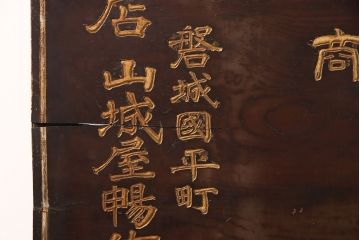 商
磐城國平町
店
山城屋暢